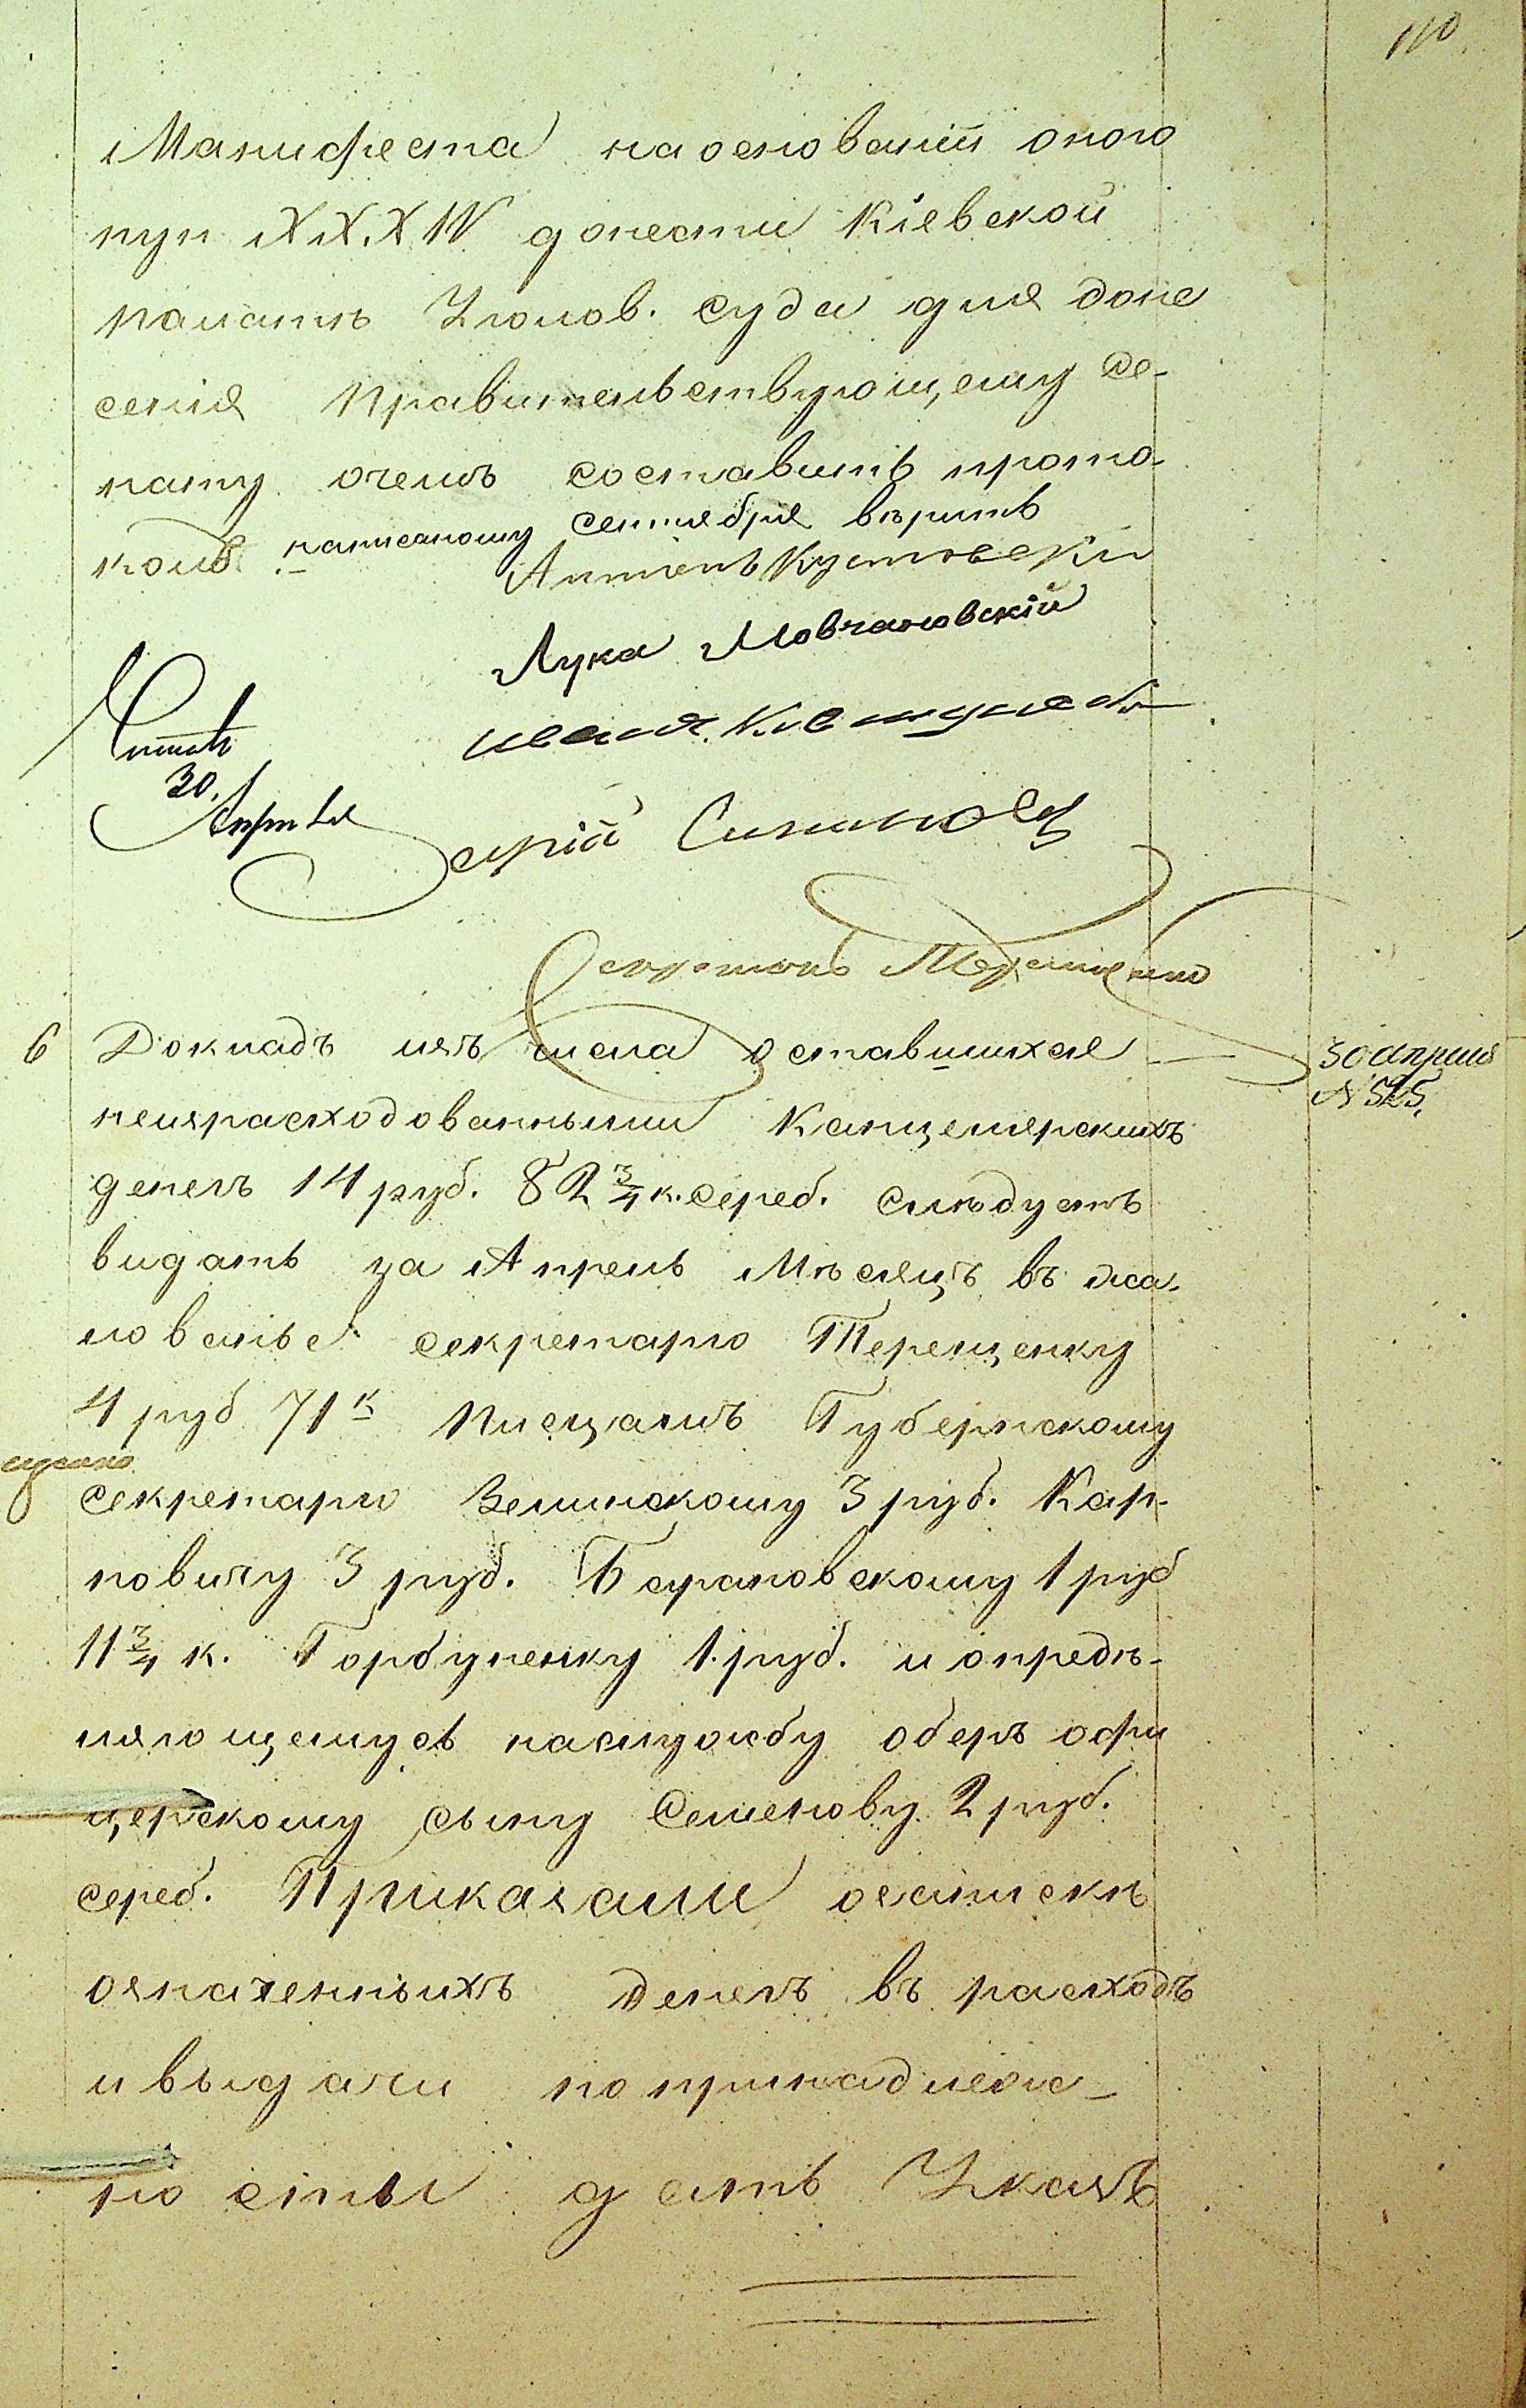 110
Манифеста на основаніи оного
пун XX.XIV донести Кіевской
палатѣ Уголов. суда для доне
сенія Правительствующему Се-
нату очемъ составить прото-
колъ. написаному сентября вѣрить
Антонъ Кутовски
Лука Мовчановскій
Читалъ
30.
Апрѣля
Сергій
Секретарь Терещенко
6 Докладъ изъ числа оставшихся
30 апреля
№ 525.
неизрасходованными Канцелярскихъ
денегъ 14 руб. 82 3/4 к. сереб. слѣдуетъ
видать за Апрель Мѣсяцъ въ жа-
лованье секретарю Терещенку
4 руб 71 к Писцамъ Губернскому
секретарю Зелинскому 3 руб. Кар-
повичу 3 руб. Барановскому 1 руб
11 3/4 к. Горбуненку 1. руб. и опредѣ-
ляющемусь наслужбу оберъ офи
церскому сыну Семенову 2 руб.
сереб. Приказали озапискѣ
означенныхъ денегъ въ расходъ
и выдачи по принадлеже-
ности дать Указъ